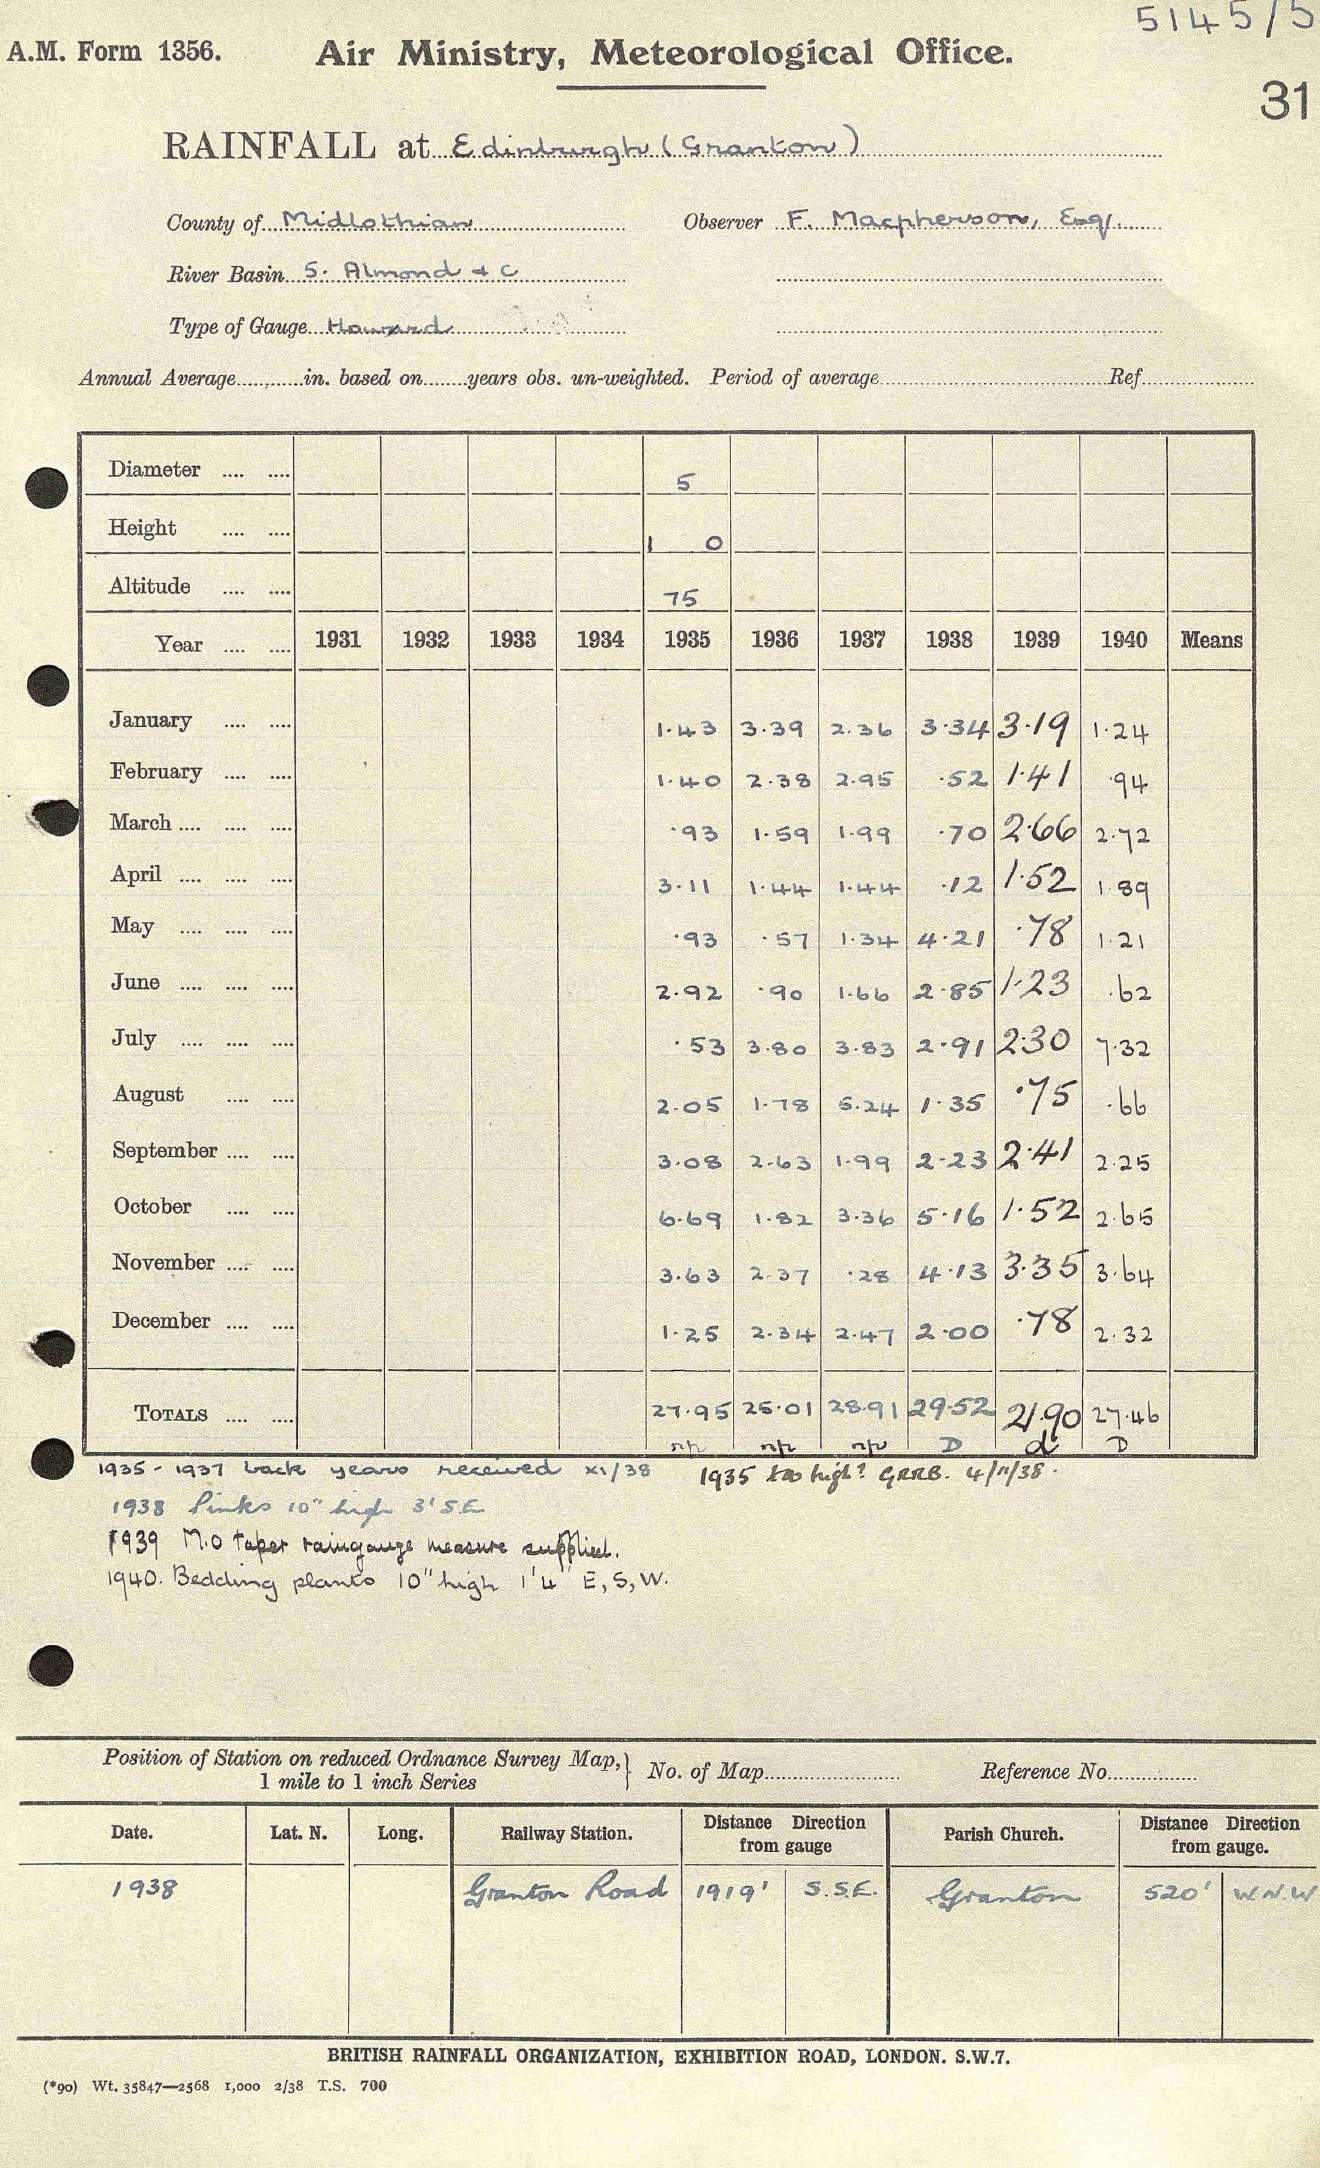 5145/5
A.M. Form 1356. Air Ministry, Meteorological Office.
31
RAINFALL at Edinburgh (Granton)
County of Midlothian Observer F. Macpherson, Esq.
River Basin S. Almond & C
Type of Gauge Howard
Annual Average in. based on years obs. un-weighted. Period of average Ref.
Diameter .... .... 5
Height .... .... 1 0
Altitude .... .... 75
Year .... .... 1931 1932 1933 1934 1935 1936 1937 1938 1939 1940 Means
January .... .... 1.43 3.39 2.36 3.34 3.19 1.24
February .... .... 1.40 2.38 2.95 .52 1.41 .94
March .... .... .... .93 1.59 1.99 .70 2.66 2.72
April .... .... .... 3.11 1.44 1.44 .12 1.52 1.89
May .... .... .... .93 .57 1.34 4.21 .78 1.21
June .... .... .... 2.92 .90 1.66 2.85 1.23 .62
July .... .... .... .53 3.80 3.83 2.91 2.30 7.32
August .... .... 2.05 1.78 5.24 1.35 .75 .66
September .... .... 3.08 2.63 1.99 2.23 2.41 2.25
October .... .... 6.69 1.82 3.36 5.16 1.52 2.65
November .... .... 3.63 2.37 .28 4.13 3.35 3.64
December .... .... 1.25 2.34 2.47 2.00 .78 2.32
TOTALS .... .... 27.95 25.01 28.91 29.52 21.90 27.46
np np np D d D
1935 - 1937 back years received XI/38 1935 too high? GRRB. 4/11/38.
1938 Pinks 10" high 3' SE
1939 M.O taper raingauge measure supplied.
1940. Bedding plants 10" high 1'4" E, S, W.
Position of Station on reduced Ordnance Survey Map,} No. of Map Reference No
1 mile to 1 inch Series
Date. Lat. N. Long. Railway Station. Distance Direction from gauge Parish Church. Distance Direction from gauge.
1938 Granton Road 1919' S.S.E. Granton 520' W.N.W
BRITISH RAINFALL ORGANIZATION, EXHIBITION ROAD, LONDON. S.W.7.
(*90) Wt. 35847—2568 1,000 2/38 T.S. 700